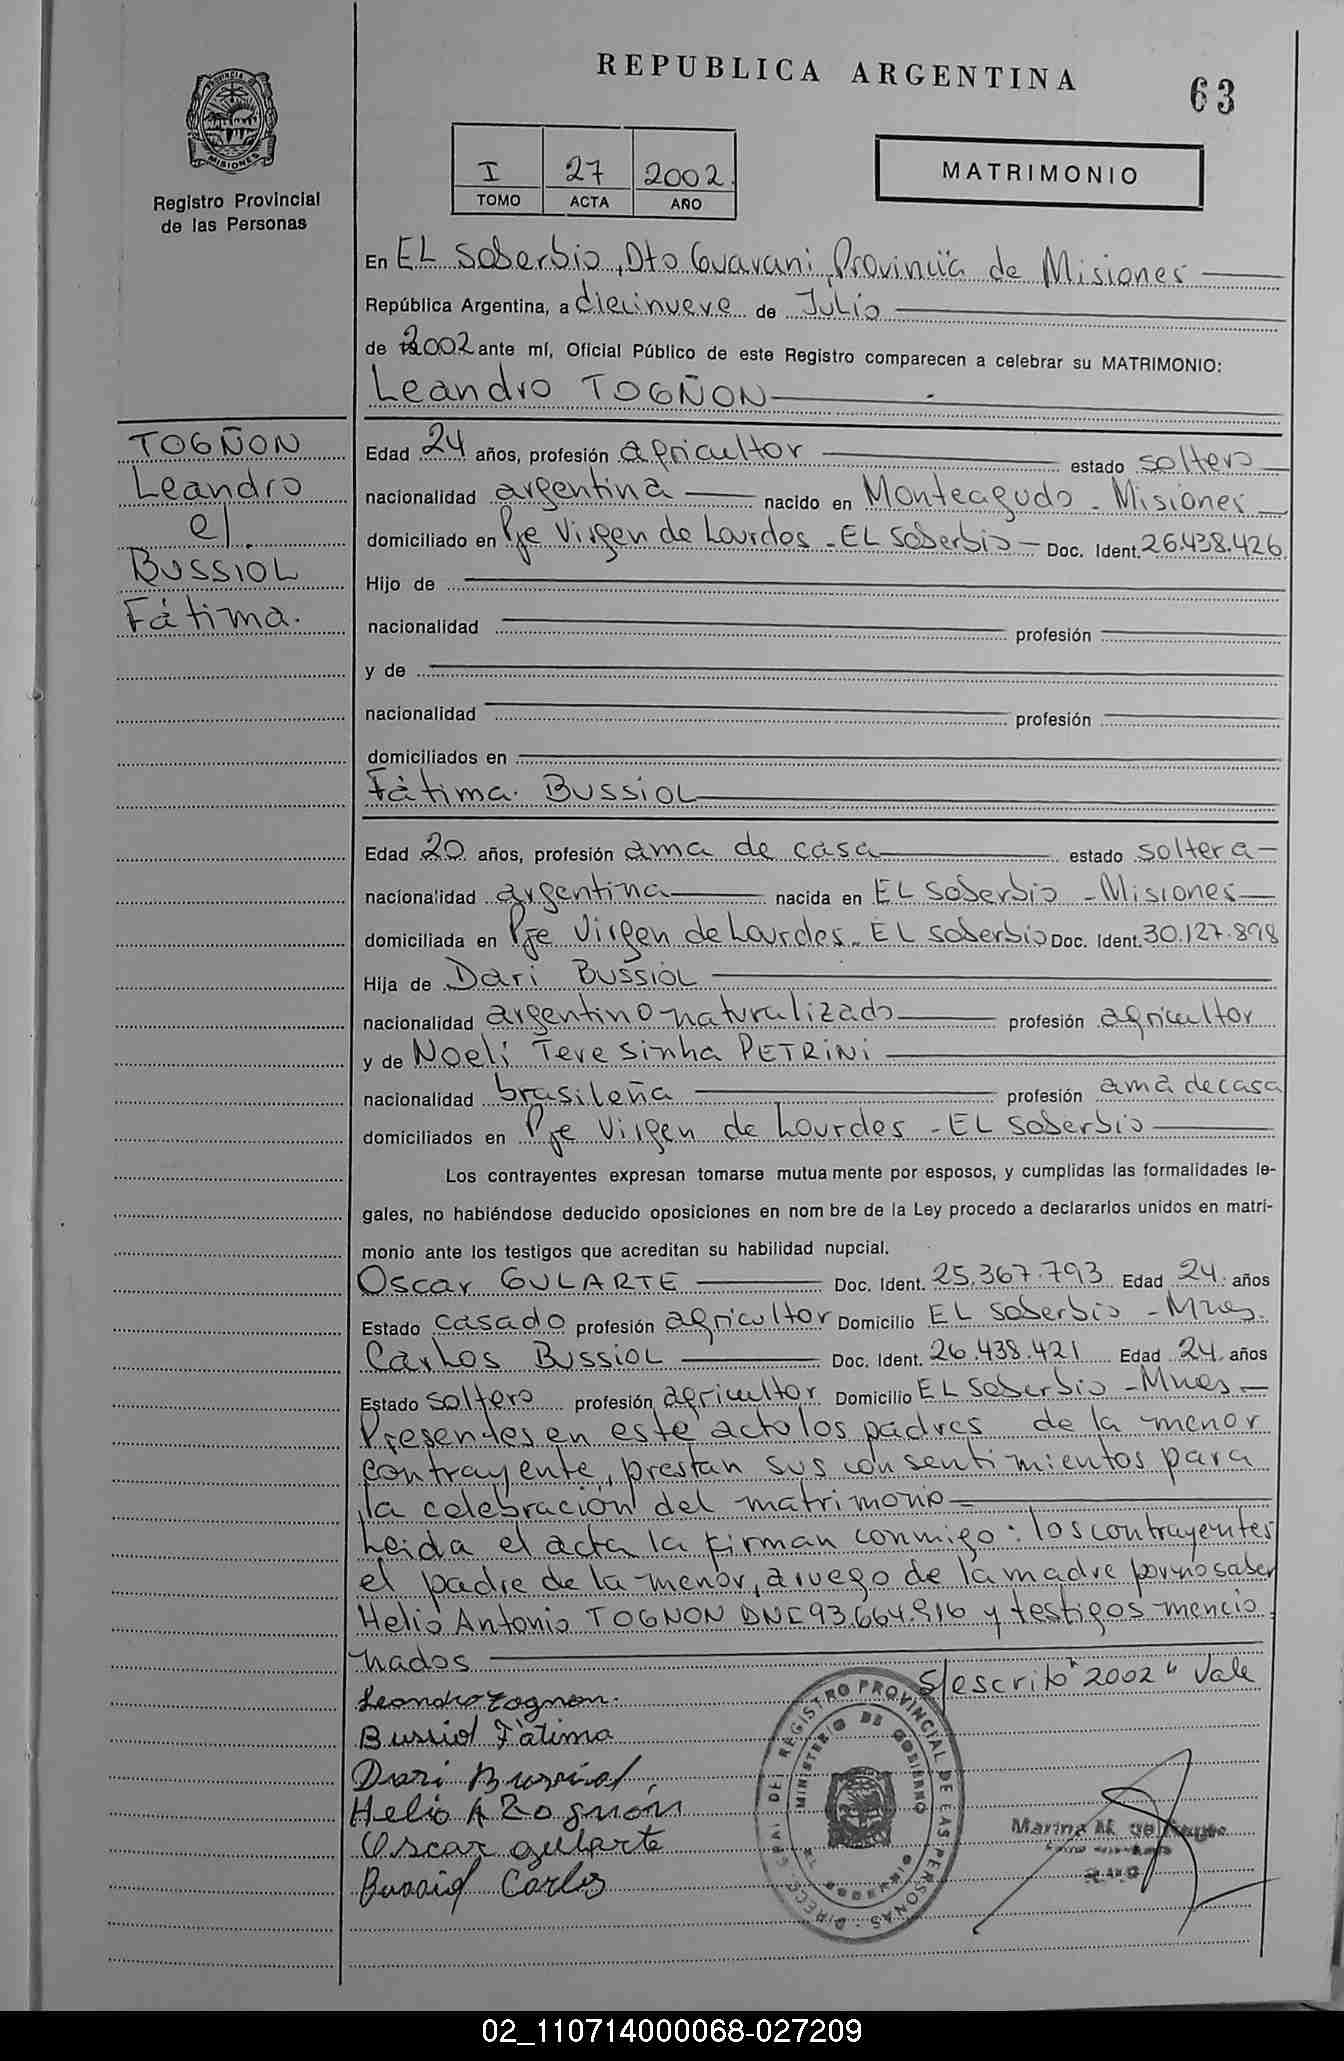 REPUBLICA ARGENTINA
63
PROVINCIA DE MISIONES
Registro Provincial
de las Personas
I 27 2002
TOMO ACTA AÑO
MATRIMONIO
En EL Soberbio, Dto Guaraní, Provincia de Misiones
República Argentina, a diecinueve de Julio
de 2002 ante mí, Oficial Público de este Registro comparecen a celebrar su MATRIMONIO:
Leandro TOGÑON
TOGÑON
Leandro
c/.
BUSSIOL
Fátima.
Edad 24 años, profesión agricultor estado soltero
nacionalidad argentina nacido en Monteagudo - Misiones
domiciliado en Pje Virgen de Lourdes - EL Soberbio - Doc. Ident. 26.438.426
Hijo de
nacionalidad profesión
y de
nacionalidad profesión
domiciliados en
Fátima BUSSIOL
Edad 20 años, profesión ama de casa estado soltera
nacionalidad argentina nacida en EL Soberbio - Misiones
domiciliada en Pje Virgen de Lourdes - EL Soberbio Doc. Ident. 30.127.898
Hija de Dari BUSSIOL
nacionalidad argentino naturalizado profesión agricultor
y de Noeli Teresinha PETRINI
nacionalidad brasileña profesión ama de casa
domiciliados en Pje Virgen de Lourdes - EL Soberbio
Los contrayentes expresan tomarse mutuamente por esposos, y cumplidas las formalidades le-
gales, no habiéndose deducido oposiciones en nombre de la Ley procedo a declararlos unidos en matri-
monio ante los testigos que acreditan su habilidad nupcial.
Oscar GULARTE Doc. Ident. 25.367.793 Edad 24 años
Estado casado profesión agricultor Domicilio EL Soberbio - Mnes.
Carlos BUSSIOL Doc. Ident. 26.438.421 Edad 24 años
Estado soltero profesión agricultor Domicilio EL Soberbio - Mnes -
Presentes en este acto los padres de la menor
contrayente, prestan sus consentimientos para
la celebración del matrimonio
Leida el acta la firman conmigo: los contrayentes
el padre de la menor, a ruego de la madre por no saber
Helio Antonio TOGNON DNI 93.664.916 y testigos mencio
nados
S/escrito "2002" Vale
Leandro Tognon.
Bussiol Fátima
Dari Bussiol
Helio A Tognón
Oscar gularte
Bussiol Carlos
REGISTRO PROVINCIAL DE LAS PERSONAS
MINISTERIO DE GOBIERNO
Marina M. de
02_110714000068-027209